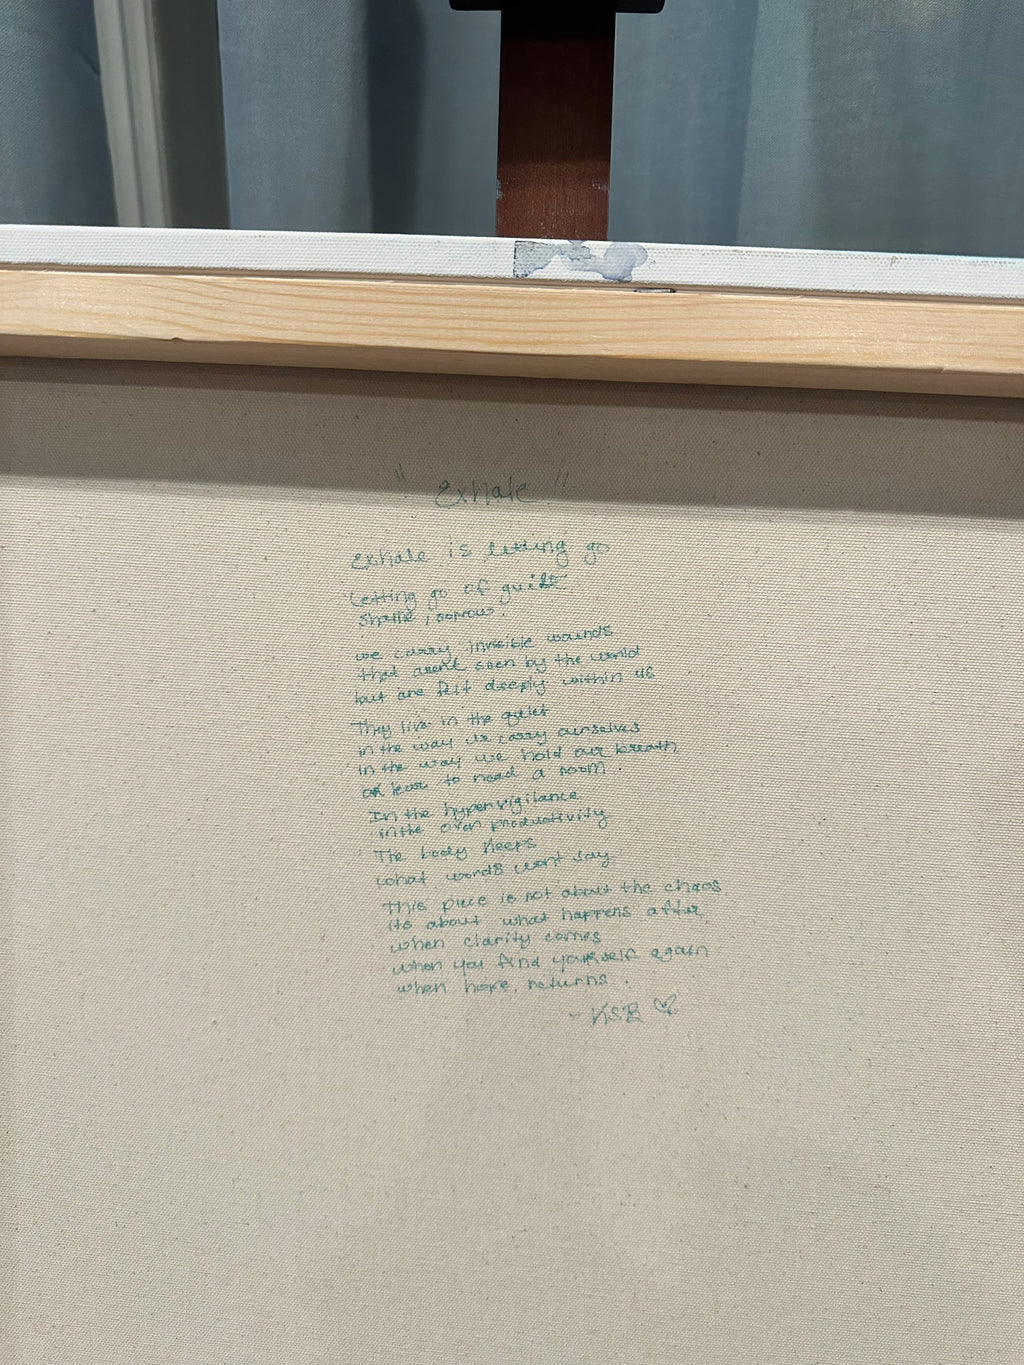 "Exhale"
Exhale is letting go
Letting go of guilt
Shame, sorrow.
we carry invisible wounds
that arent seen by the world
but are felt deeply within us
They live in the quiet
in the way we carry ourselves
in the way we hold our breath
or lear to read a room.
In the hypervigilance
in the over productivity
The body keeps
what words wont say
This piece is not about the chaos
its about what happens after
when clarity comes
when you find yourself again
when hope, returns.
- KSB ♡